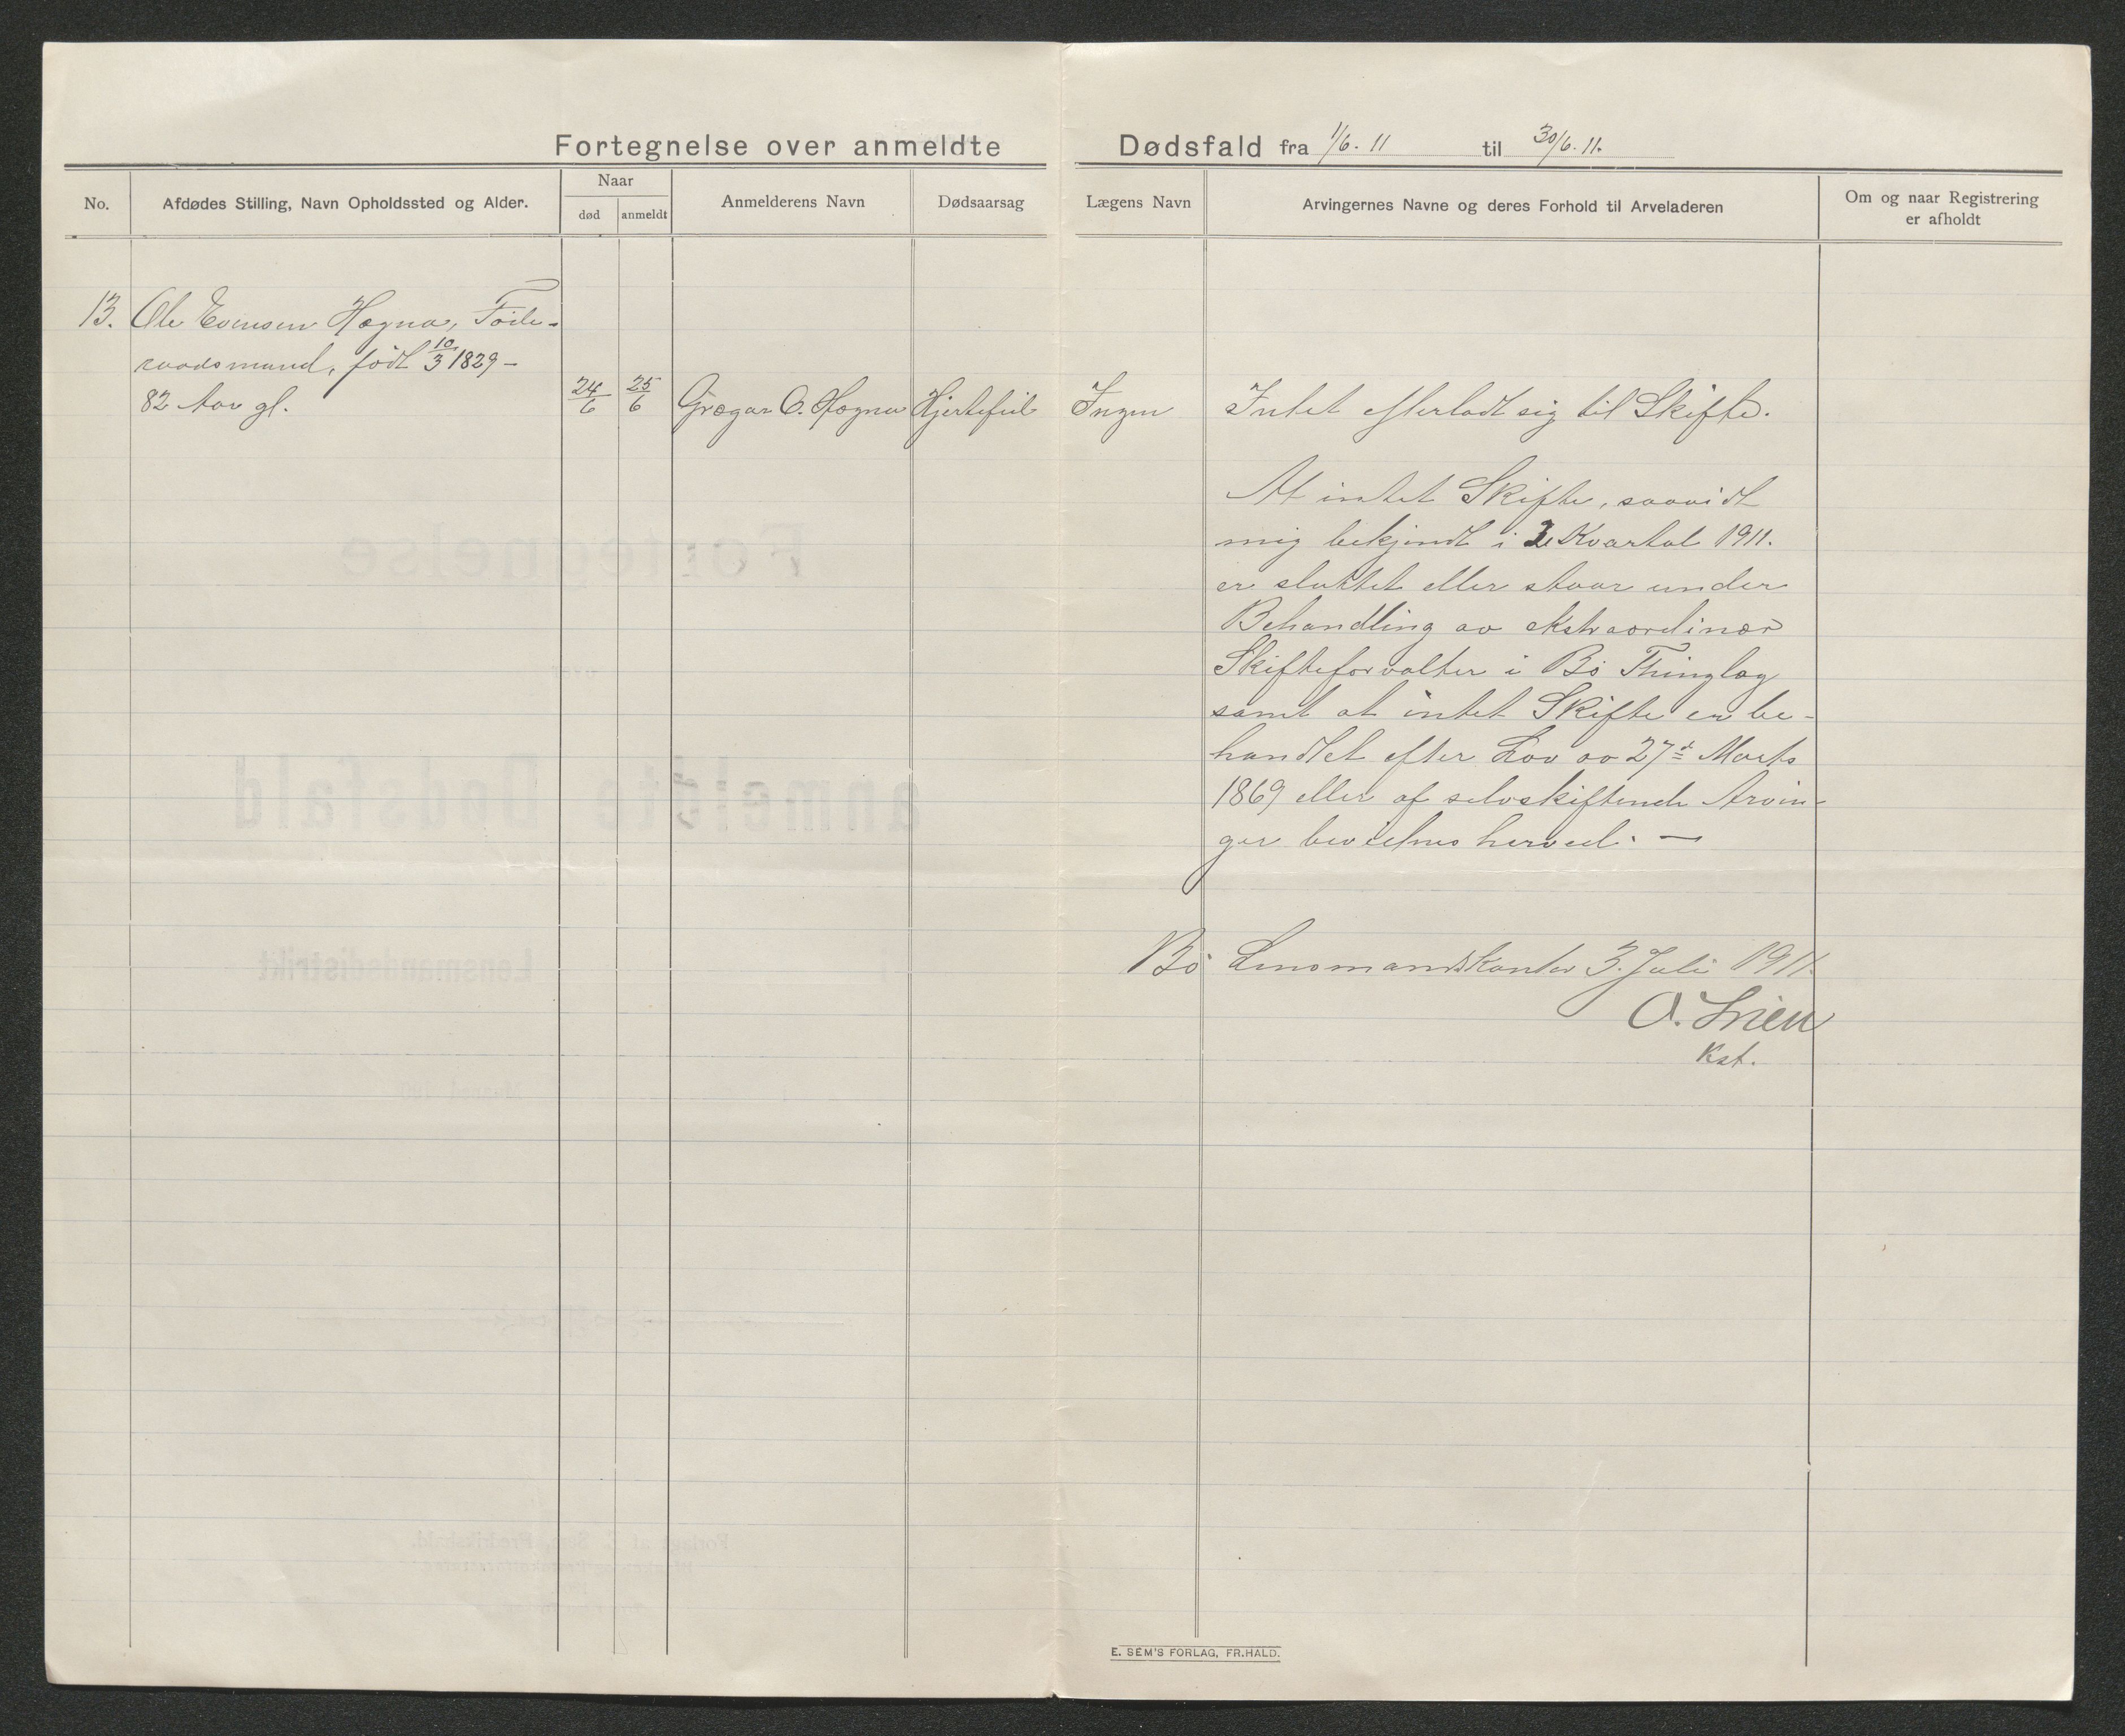 Fortegnelse over anmeldte Dødsfald fra 1/6. 11 til 30/6. 11.
No.
Afdødes Stilling, Navn Opholdssted og Alder.
Naar
død
anmeldt
Anmelderens Navn
Dødsaarsag
Lægens Navn
Arvingernes Navne og deres Forhold til Arveladeren
Om og naar Registrering
er afholdt
13. Ole Evensen Hægna, Føde-
raadsmand, født 10/3 1829 -
82 Aar gl.
24/6
25/6
Grægar O. Hægna
Hjertefeil
Ingen
Intet efterladt sig til Skifte.
At intet Skifte, saavidt
mig bekjendt i 2 Kvartal 1911.
er sluttet eller staar under
Behandling av ekstraordinær
Skifteforvalter i Bø Thinglag
samt at intet Skifte er be-
handlet efter Lov av 27de Marts
1869 eller af selvskiftende Arvin-
ger bevidnes herved. —
Bø Lensmandskontor 3. Juli 1911.
O. Lien
Kst.
E. SEM'S FORLAG, FR.HALD.